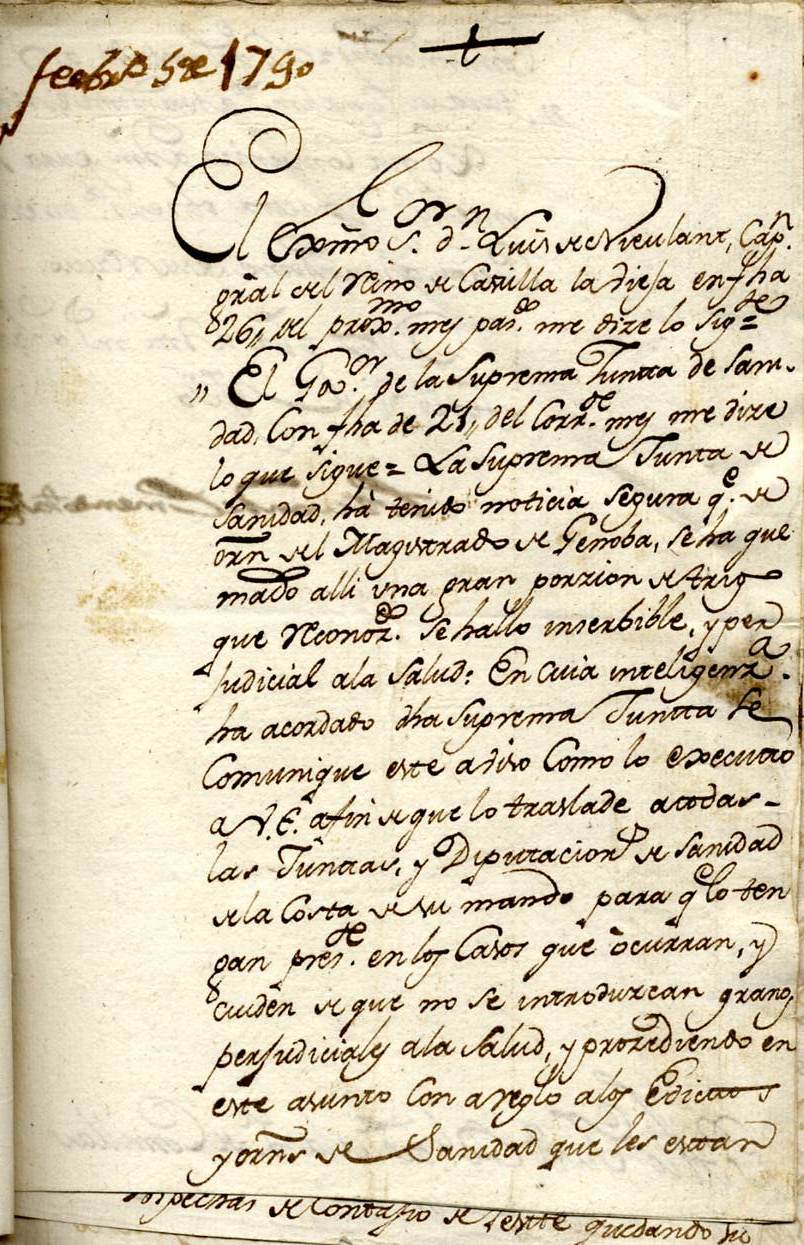 feebr.º 5 de 1790
Corn
El Exmo S. d.n Luis de Urculant, Cap.n
gral del Reino de Castilla la Vieja en fha
26,, del prox.mo mes pas.do me dize lo sig.te =
„ El Gov.or de la Suprema Juntta de Sani-
dad, Con fha de 21,, del Corr.te mes me dize
lo que sigue = La Suprema Junta de
Sanidad, ha tenido noticia segura q.e de
orn del Magistrado de Genoba, se ha que
mado alli una gran porzion de trigo
que reconoz.do se hallo inserbible, y per
judicial a la Salud: En Cuia inteligenz.a
ha acordado dha Suprema Juntta se
Comunique este aviso Como lo executo
a V.E. a fin de que lo traslade a todas-
las Junttas, y Diputacion.s de Sanidad
de la Costa de su mando para q.e lo ten
gan pres.te en los Casos que ocurran, y
cuiden de que no se introduzcan granos
perjudiciales a la Salud, y prozediendo en
este asunto Con areglo a los Edictos
y orns de Sanidad que les estan
sospechas de Contagio de Peste quedando